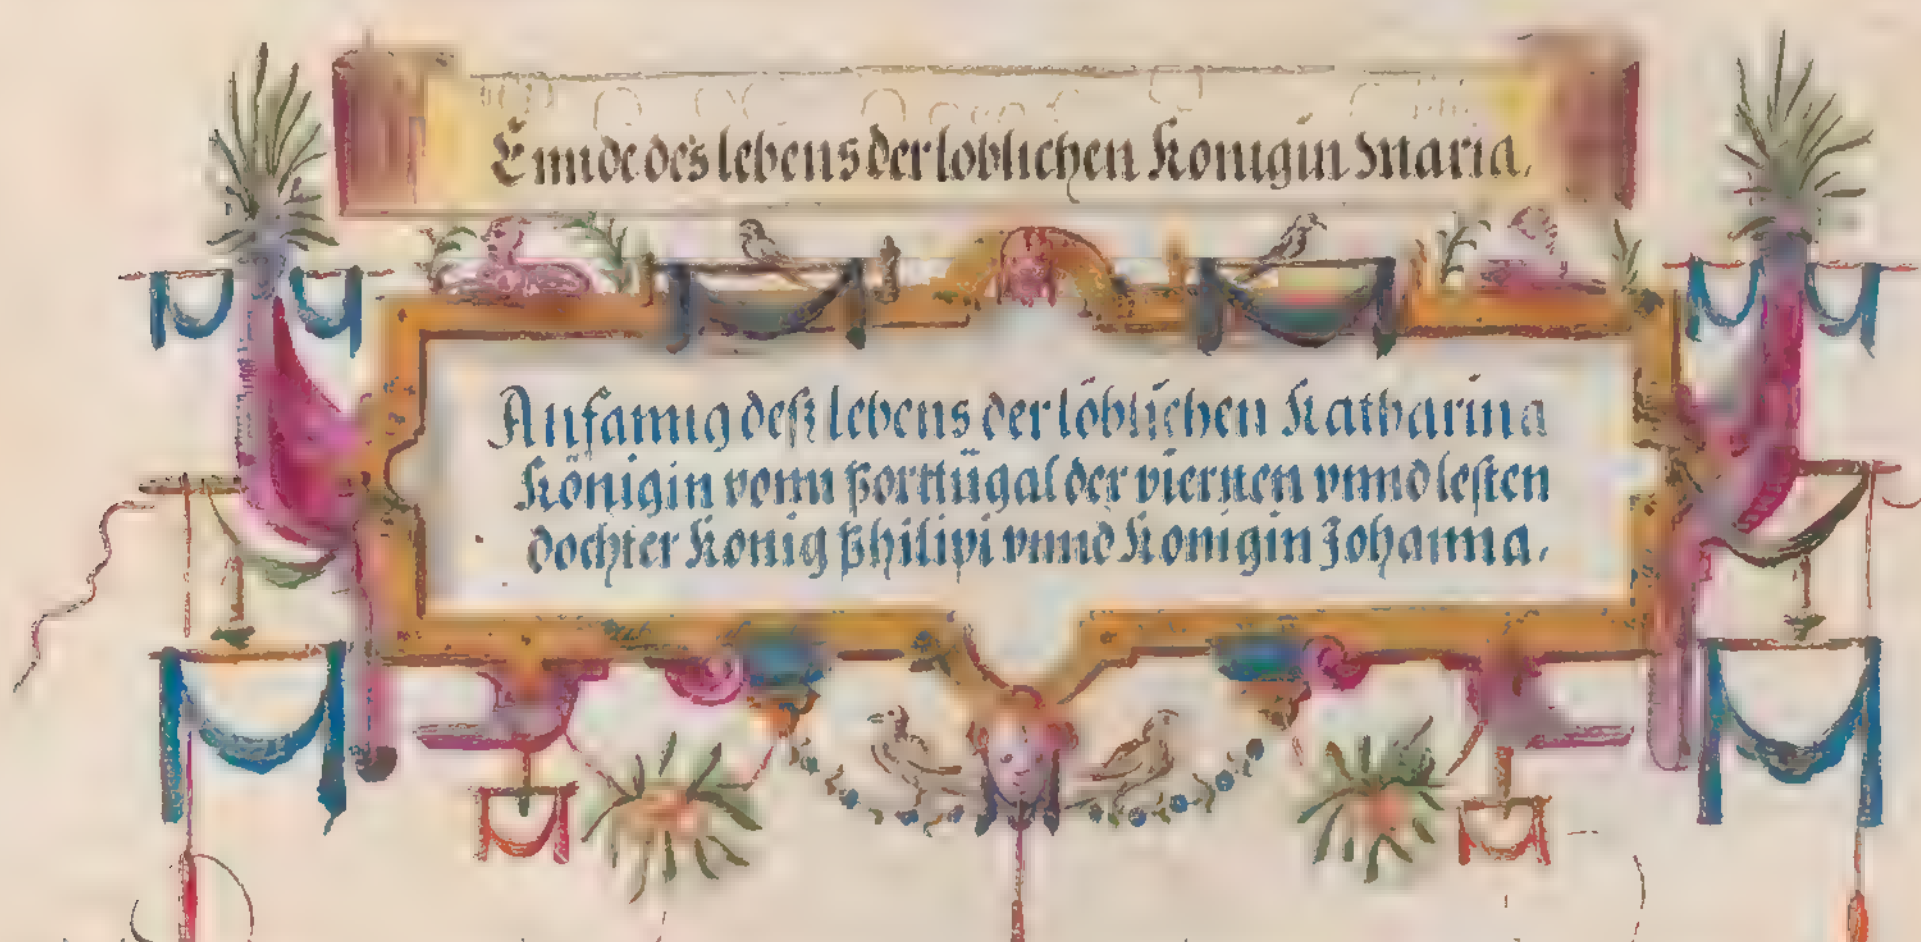 Ennde des lebens der loblichen Konigin Maria.
Anfanng deß lebens der löblichen Katharina
Königin vonn Porttügal der viernten vnnd lesten
dochter Konig Philipi vnnd Konigin Johanna.